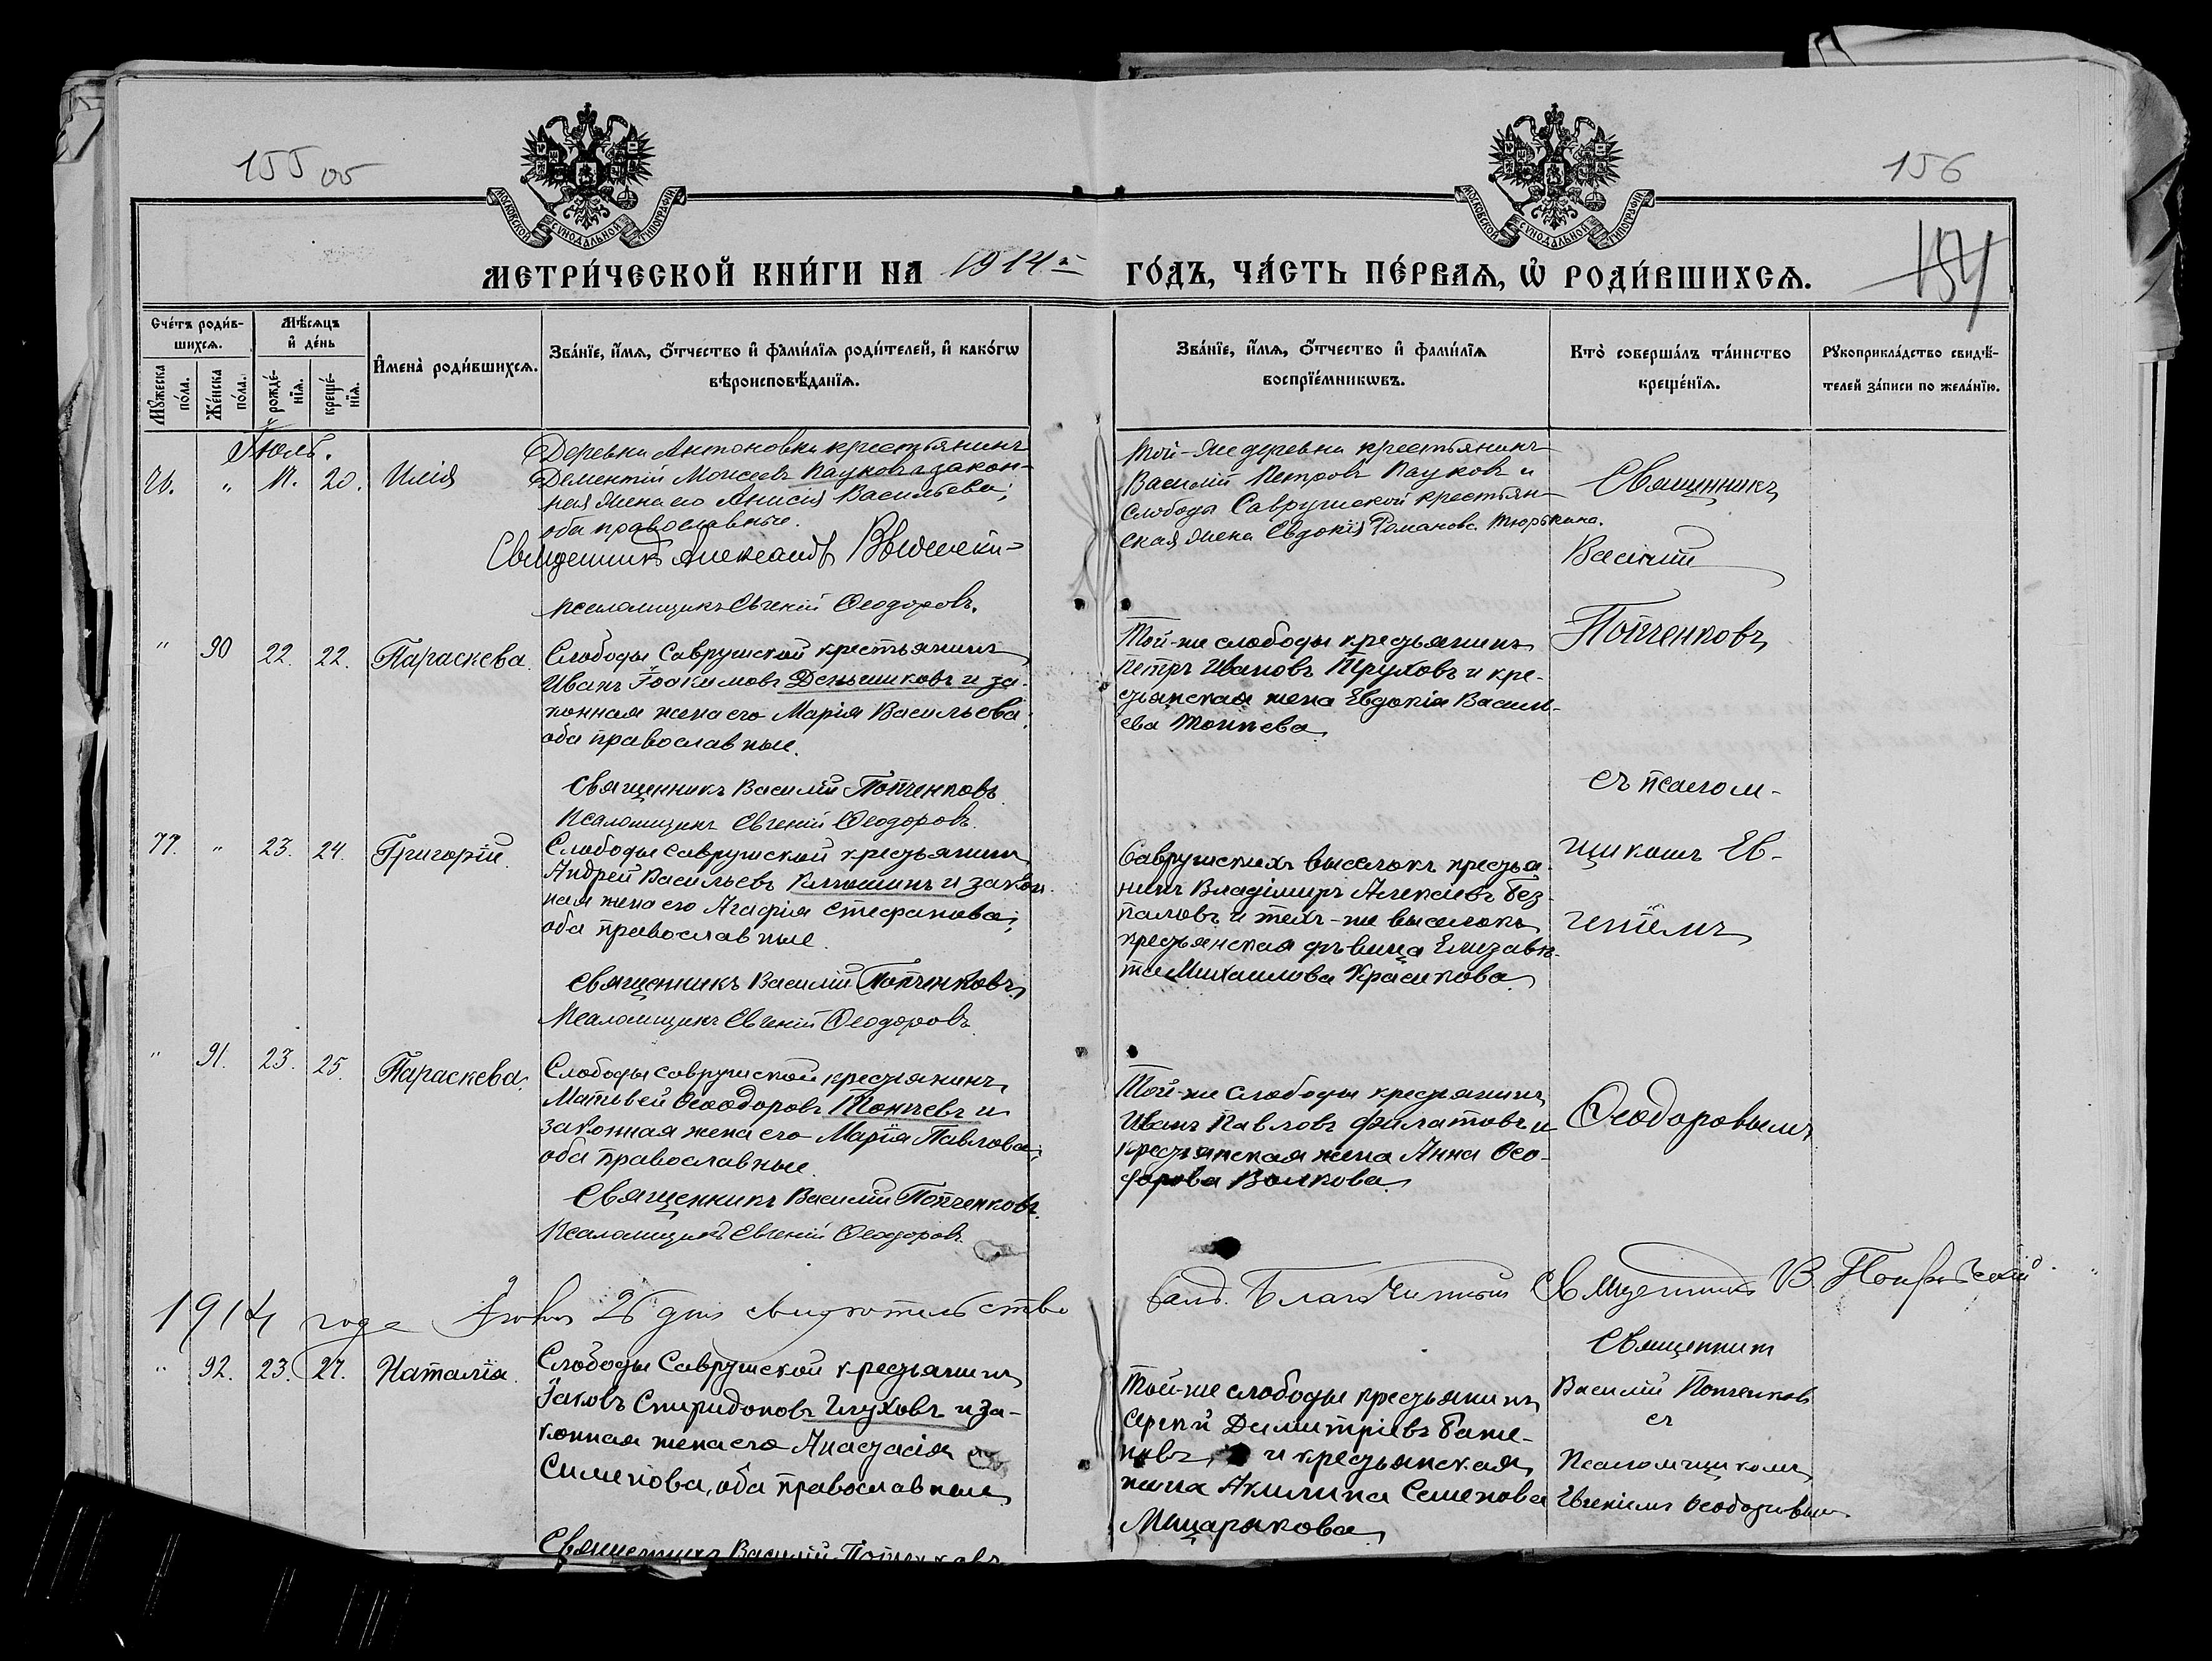 155 об
156
154
МОСКОВСКОЙ СѴНОДАЛЬНОЙ ТИПОГРАФІИ
МОСКОВСКОЙ СѴНОДАЛЬНОЙ ТИПОГРАФІИ
МЕТРИ́ЧЕСКОЙ КНИ́ГИ НА 1914й ГО́ДЪ, ЧА́СТЬ ПЕ́РВАѦ, Ѽ РОДИ́ВШИХСѦ.
Сче́тъ роди́в-
шихсѧ.
Мꙋ́жеска по́ла.
Же́нска по́ла.
Мѣ́сѧцъ
и҆ де́нь
рожде́-
нїѧ.
креще́-
нїѧ.
И҆мена̀ роди́вшихсѧ.
Зва́нїе, и҆́мѧ, ѻ҆́тчество и҆ фами́лїѧ роди́телей, и҆ како́гѡ
вѣроисповѣ́данїѧ.
Зва́нїе, и҆́мѧ, ѻ҆́тчество и҆ фами́лїѧ
воспрїе́мникѡвъ.
Кто̀ соверша́лъ та́инство
креще́нїѧ.
Рꙋкоприкла́дство свидѣ́-
телей за́писи по жела́нїю.
Іюль.
76. " 17. 20. Илія
Деревни Антоновки крестьянинъ
Дементій Моисеевъ Пауковъ и закон-
ная жена его Анисія Васильева;
оба православные.
Священникъ Александръ
псаломщикъ Евгеній Ѳеодоровъ.
Той-же деревни крестьянинъ
Василій Петровъ Пауковъ и
Слободы Саврушской крестьян-
ская жена Евдокія Романова Тюрькина.
Священникъ
Василій
" 90 22. 22. Параскева.
Слободы Саврушской крестьянинъ
Иванъ Іоакимовъ Деньшиковъ и за-
конная жена его Марія Васильева;
оба православные.
Священникъ Василій Попченковъ
Псаломщикъ Евгеній Ѳеодоровъ.
Той-же слободы крестьянинъ
Петръ Ивановъ Труховъ и кре-
стьянская жена Евдокія Василь-
ева Тоннева
Попченковъ
съ псалом-
77. " 23. 24. Григорій.
Слободы Саврушской крестьянинъ
Андрей Васильевъ Клюшинъ и закон-
ная жена его Агафія Стефанова;
оба православные.
Священникъ Василій Попченковъ
Псаломщикъ Евгеній Ѳеодоровъ.
Саврушскихъ выселокъ крестья-
нинъ Владіміръ Алексіевъ Без-
паловъ и тѣхъ-же выселокъ
крестьянская дѣвица Елизаве-
та Михаилова Красикова
щикомъ Ев-
геніемъ
" 91. 23. 25. Параскева.
Слободы Саврушской крестьянинъ
Матѳей Ѳеодоровъ Тончевъ и
законная жена его Марія Павлова;
оба православные.
Священникъ Василій Попченковъ.
Псаломщикъ Евгеній Ѳеодоровъ.
Той-же Слободы крестьянинъ
Иванъ Павловъ Филатовъ и
крестьянская жена Анна Ѳео-
дорова Волкова
Ѳеодоровымъ
1914 года 26 дня свидѣтельство
Благочинный Священникъ В. Покровскій
" 92. 23. 27. Наталія.
Слободы Саврушской крестьянинъ
Іаковъ Спиридоновъ Глуховъ и за-
конная жена его Анастасія
Симеонова, оба православные
Священникъ Василій Попченковъ
Той-же слободы крестьянинъ
Сергій Димитріевъ Баже-
новъ, и крестьянская
жена Акилина Семенова
Мещерякова
Священникъ
Василій Попченковъ
съ
Псаломщикомъ
Евгеніемъ Ѳеодоровымъ